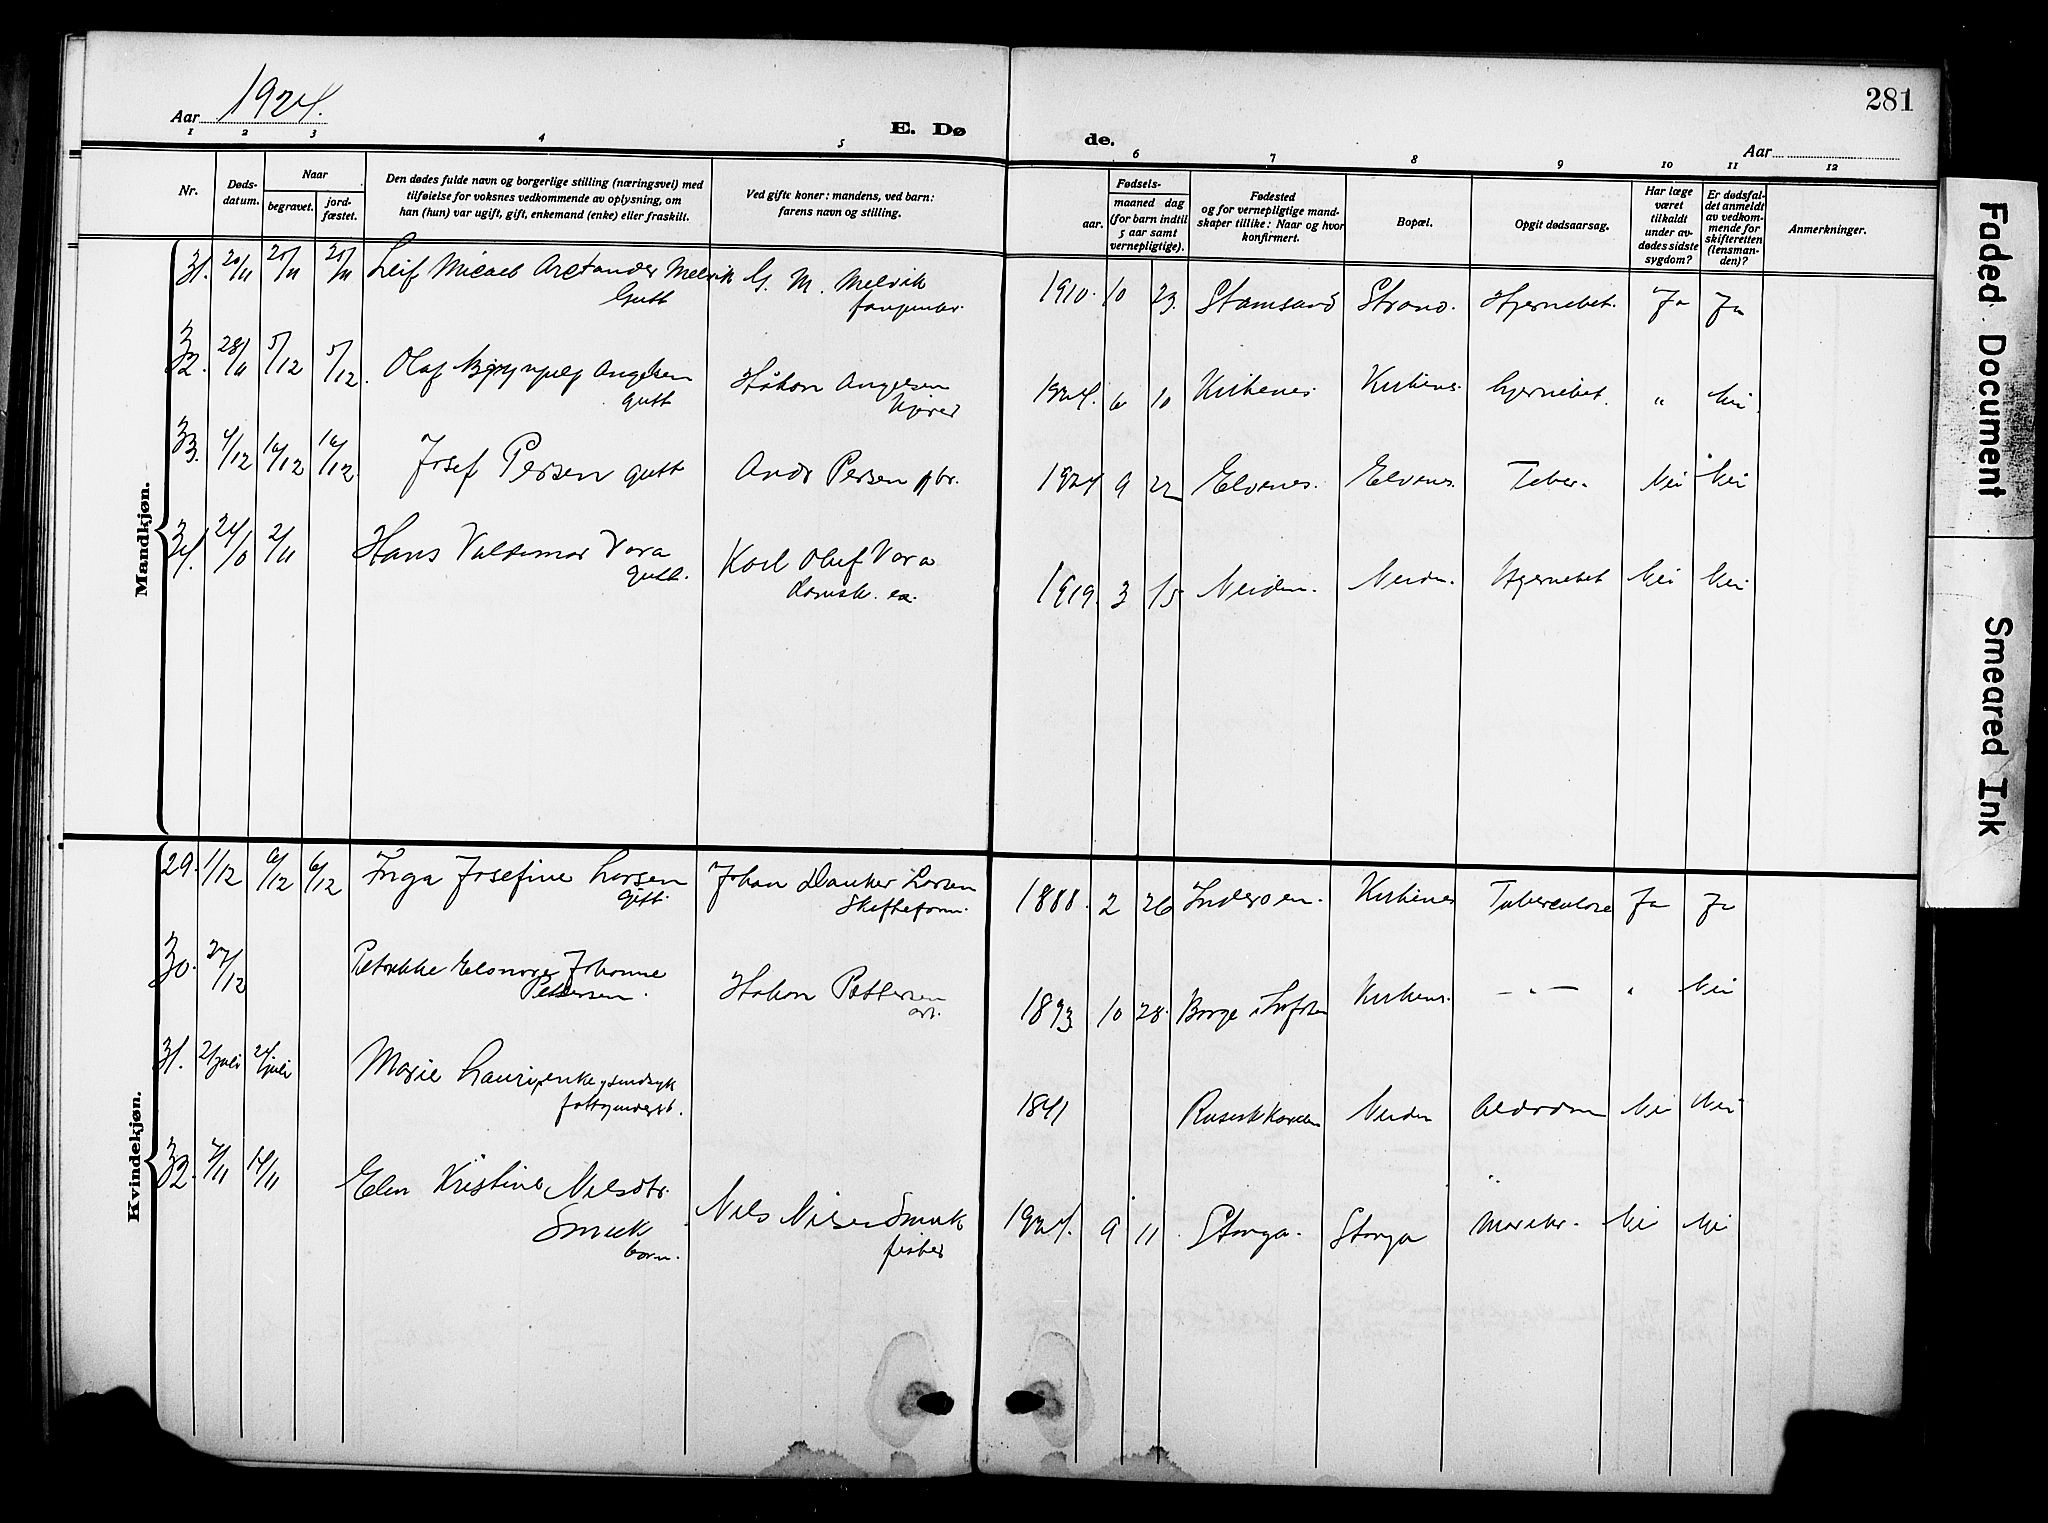 281
Aar 1924.
E. Dø
de.
Aar
1 2 3 4 5 6 7 8 9 10 11 12
Nr.
Døds-
datum.
Naar
begravet.
jord-
fæstet.
Den dødes fulde navn og borgerlige stilling (næringsvei) med
tilføielse for voksnes vedkommende av oplysning, om
han (hun) var ugift, gift, enkemand (enke) eller fraskilt.
Ved gifte koner: mandens, ved barn:
farens navn og stilling.
Fødsels-
aar. maaned dag
(for barn indtil
5 aar samt
vernepligtige).
Fødested
og for vernepligtige mand-
skaper tillike: Naar og hvor
konfirmert.
Bopæl.
Opgit dødsaarsag.
Har læge
været
tilkaldt
under av-
dødes sidste
sygdom?
Er dødsfal-
det anmeldt
av vedkom-
mende for
skifteretten
(lensman-
den)?
Anmerkninger.
Mandkjøn.
31. 20/11 25/11 25/11 Leif Micael Melvik G. M. Melvik 1910. 10 23. Stamsund Strand. Hjernebet. Ja Ja
Gutt
32. 28/11 5/12 5/12. Olaf Angelsen Håkon Angelsen 1924. 6 10 Kirkenes Kirkenes. Hjernebet. " Nei
gutt
33. 4/12 16/12 16/12. Josef Persen gutt Andr Persen gbr. 1924 9 22 Elvenes. Elvenes. Tuber. Nei Nei
34. 24/10 2/11 Hans Valdemar Vara Karl Oluf Vara 1919. 3 15 Neiden. Neiden. Hjernebet Nei Nei
gutt.
Kvindekjøn.
29. 1/12 6/12 6/12 Inga Josefine Larsen Johan Danker Larsen 1888. 2 26 Inderøen. Kirkenes Tuberculose Ja Ja
gift. Skifteform.
30. 27/12 Petrikke Elonore Johanne
Pettersen. Håkon Pettersen 1893 10 28. Borge i Lofoten Kirkenes. — " — " Nei
arb.
31. 2/juli 24/juli Marie Lauri, enke, sindsyk 1841 Russisk Karelen Neiden Alderdom Nei Nei
fattigunderst.
32. 7/11 14/11 Elen Kristine Nilsdtr.
Smuk Nils Nilsen Smuk 1924. 9 11 Stonga. Stonga Nei Nei
barn. fisker
Faded Document
Smeared Ink